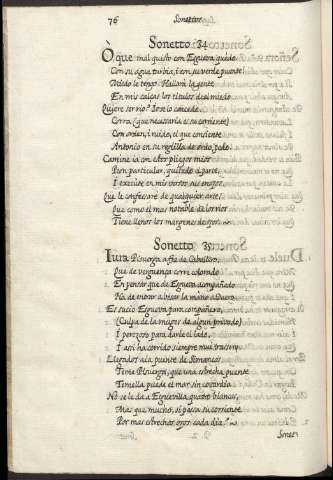 76 Sonettos
Sonetto 34
O que mal quisto con Esgueua quedo
Con su agua turbia, i con su verde puente
Miedo le tengo. Hallará la gente
En mis calças los titulos del miedo
Quiere ser rio? Io se lo concedo
Corra (que necessaria es su corriente)
Con orden, i ruido, el que consiente
Antonio en su reglilla de ordo, pedo.
Camine ia con estos pliegos mios
Peon particular, quitado el parte,
I execute en mis versos sus enojos
Que le confessaré de qualquier arte
Que como el mas notable de los rios
Tiene llenos los margenes de ojos.
Sonetto 35
Iura Pisuerga a fe de Cauallero,
Que de verguença corre colorado
En pensar que de Esgueua acompañado
Ha de entrar a besar la mano a Duero
Es sucio Esgueua para compañero,
(Culpa de la muger de algun priuado)
I perezoso para dalle el lado,
I assi ha corrido siempre mui trasero
Llegados a la puente de Simancas
Teme Pisuerga, que una estrecha puente
Temella puede el mar sin couardia
No se le da a Esgueuilla quatro blancas,
Mas que mucho, si passa su corriente
Por mas estrechos ojos cada dia?
Sonet